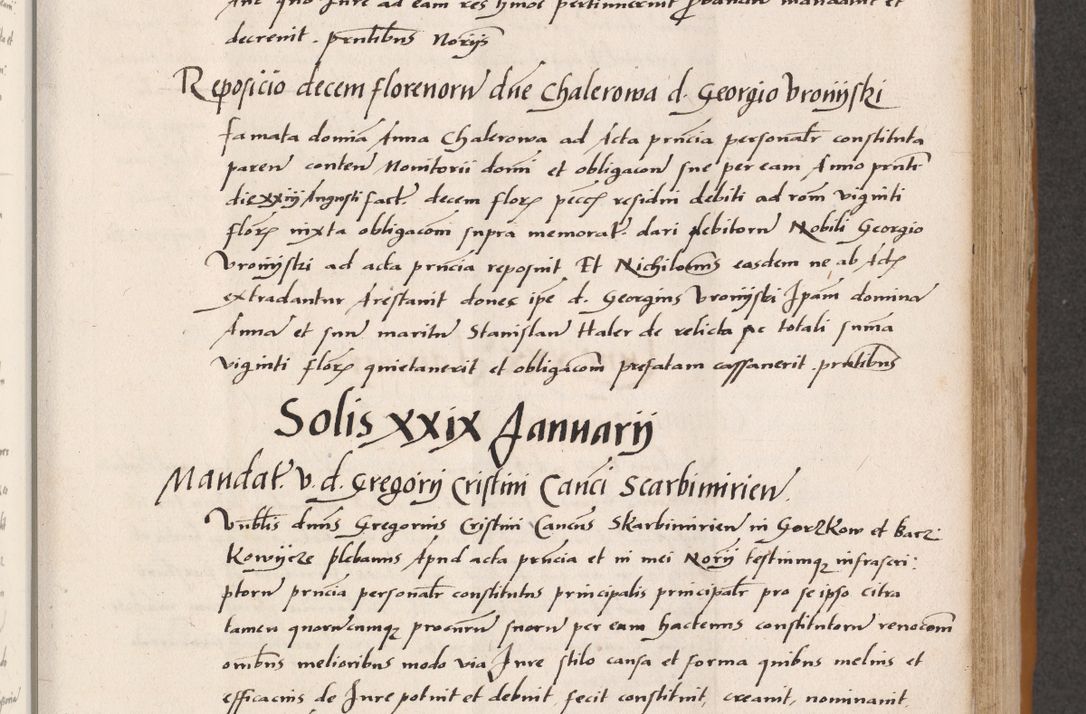 decrevit. prntibus Norijs
Reposicio decem florenoru dne Chalerowa d. Georgio Vronijski
famata domina Anna Chalerowa ad Acta prncia personalr constituta
paren conten Monitorii domi et obligacon sue per eam Anno prnti
die xxiij Augusti fact. decem flor pecc residui debiti ad rom viginti
flor iuxta obligacom supra memorat. dari debitoru Nobili Georgio
Vronijski ad acta prncia reposuit Et Nichilomns easdem ne ab Act
extradantur Arestavit donec ipe d. Georgius Vronijski Ipam domina
Anna et suu maritu Stanislau Haler de relicta ac totali suma
viginti flor quietaverit et obligacom prefatam cassaverit. prntibus
Solis xxix Januarij
Mandat. v. d. Gregorij Cristini Canci Scarbimirien.
Vnblis dnus Gregorius Cristini Cancus Skarbimirien in Gorzkow et Barz:
Kowijcze plebanus Apud acta prncia et in mei Norij testiumq infrascri:
ptoru prncia personalr constitutus principalis principalr pro se ipso citra
tamen quorucumq procuru suoru per eum hactenus constitutoru revocom
omibus melioribus modo via Jure stilo causa et forma quibus melius et
efficacius de Jure potuit et debuit fecit constituit, creavit, nominavit.